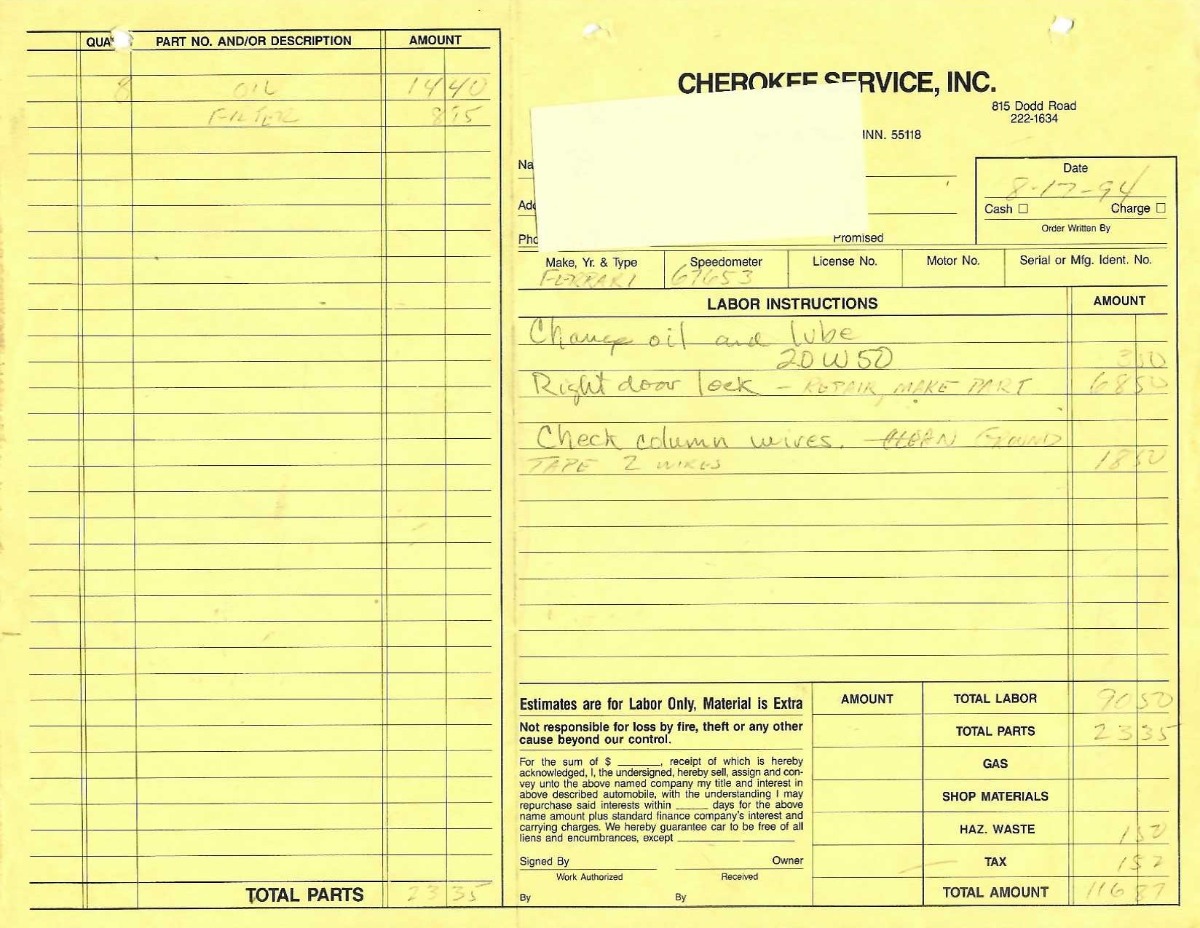 QUA PART NO. AND/OR DESCRIPTION AMOUNT
8 OIL 14 40
FILTER 8 95
TOTAL PARTS 23 35
CHEROKEE SERVICE, INC.
815 Dodd Road
222-1634
INN. 55118
Na
Add
Pho
Promised
Date
8-17-94
Cash □ Charge □
Order Written By
Make, Yr. & Type Speedometer License No. Motor No. Serial or Mfg. Ident. No.
FERRARI 67653
LABOR INSTRUCTIONS AMOUNT
Change oil and lube
20W50 3 50
Right door lock - REPAIR, MAKE PART 68 50
Check column wires. - CLEAN GROUND
TAPE 2 WIRES 18 50
Estimates are for Labor Only, Material is Extra
Not responsible for loss by fire, theft or any other
cause beyond our control.
For the sum of $ ______, receipt of which is hereby
acknowledged, I, the undersigned, hereby sell, assign and con-
vey unto the above named company my title and interest in
above described automobile, with the understanding I may
repurchase said interests within _____ days for the above
name amount plus standard finance company's interest and
carrying charges. We hereby guarantee car to be free of all
liens and encumbrances, except ____________
Signed By Owner
Work Authorized Received
By By
AMOUNT
TOTAL LABOR 90 50
TOTAL PARTS 23 35
GAS
SHOP MATERIALS
HAZ. WASTE 1 50
TAX 1 52
TOTAL AMOUNT 116 87